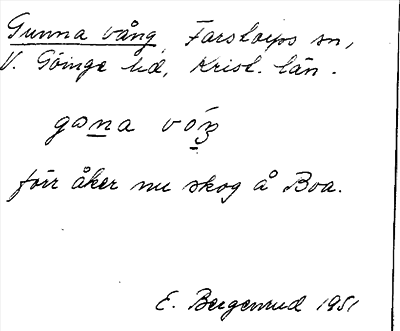 Gunna vång, Farstorps sn,
V. Göinge hd, Krist. län.
gɷna vóŋ
förr åker nu skog å Boa.
E. Bergenrud 1951